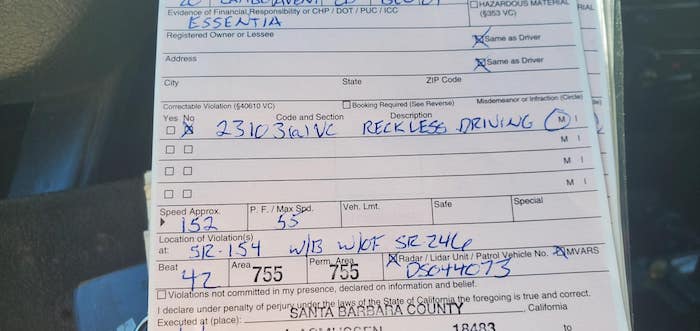 Evidence of Financial Responsibility or CHP / DOT / PUC / ICC
HAZARDOUS MATERIAL
(§353 VC)
RIAL
ESSENTIA
Registered Owner or Lessee
Same as Driver
Address
Same as Driver
City State ZIP Code
Correctable Violation (§40610 VC) Booking Required (See Reverse) Misdemeanor or Infraction (Circle)
Yes No Code and Section Description
23103(a) VC RECKLESS DRIVING M I
M I
M I
M I
Speed Approx. P. F. / Max Spd. Veh. Lmt. Safe Special
152 55
Location of Violation(s)
at: SR-154 W/B W/OF SR 246
Beat Area Perm. Area Radar / Lidar Unit / Patrol Vehicle No. MVARS
42 755 755 DS044073
Violations not committed in my presence, declared on information and belief.
I declare under penalty of perjury under the laws of the State of California the foregoing is true and correct.
Executed at (place): SANTA BARBARA COUNTY California
18483 to